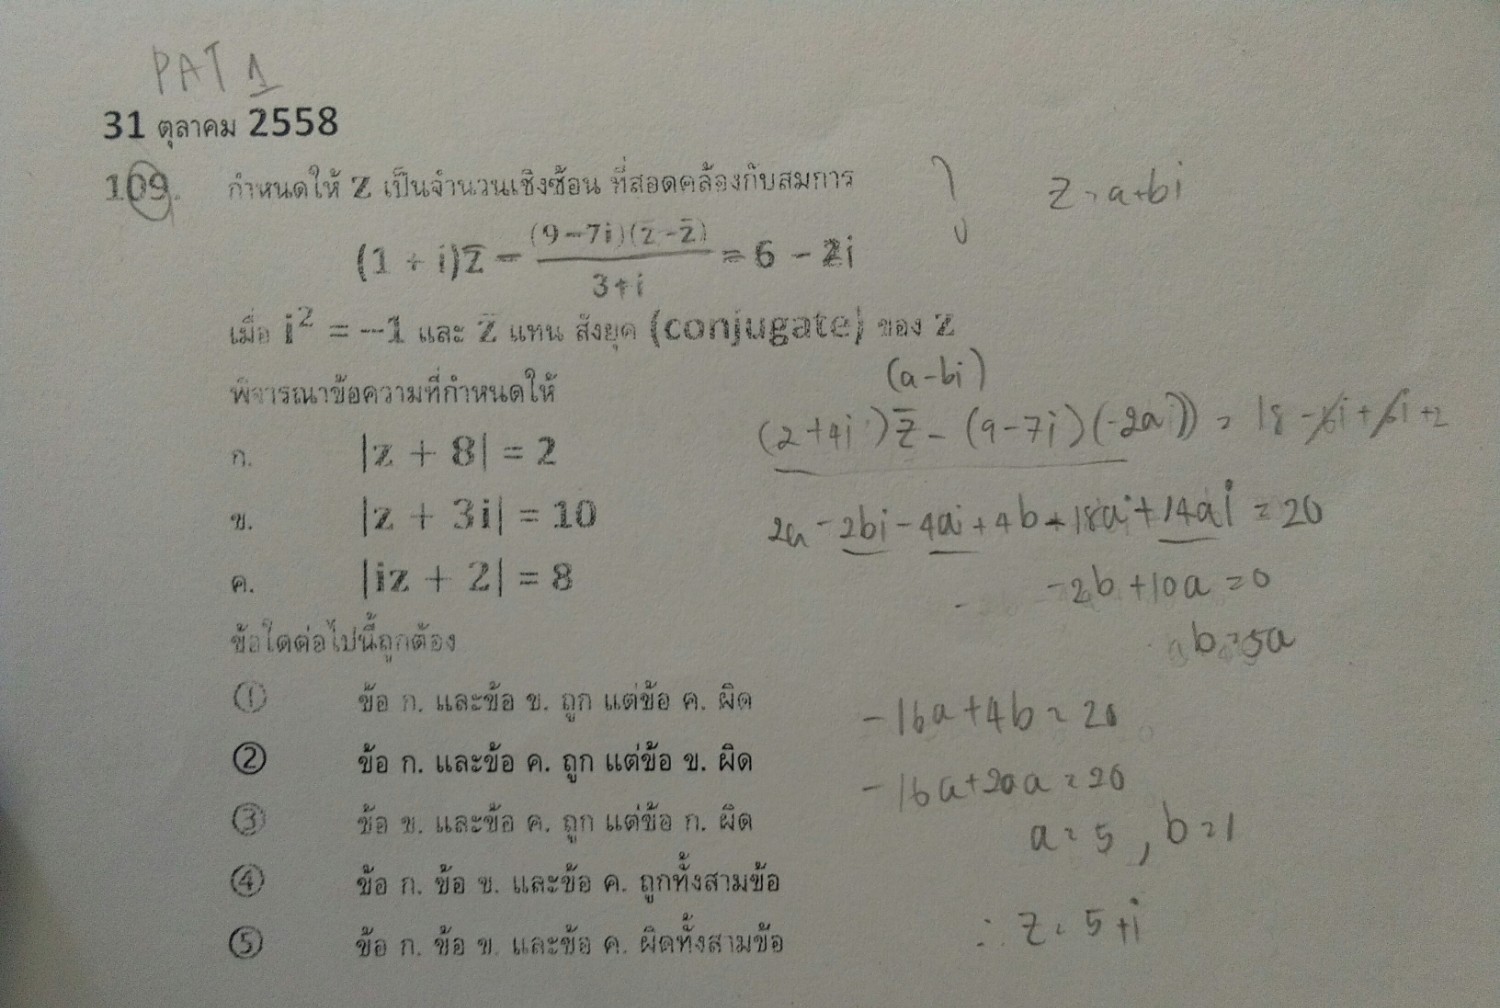 PAT 1
31 ตุลาคม 2558
109. กำหนดให้ z เป็นจำนวนเชิงซ้อน ที่สอดคล้องกับสมการ
z = a+bi
(1 + i)z̄ − (9−7i)(z−z̄) / 3+i = 6 − 2i
เมื่อ i² = −1 และ z̄ แทน สังยุค (conjugate) ของ z
(a-bi)
พิจารณาข้อความที่กำหนดให้
(2+4i)z̄ - (9-7i)(-2ai)) = 18-6i+6i+2
ก. |z + 8| = 2
ข. |z + 3i| = 10
2a - 2bi - 4ai + 4b + 18ai + 14ai = 20
ค. |iz + 2| = 8
-2b + 10a = 0
ข้อใดต่อไปนี้ถูกต้อง
b = 5a
① ข้อ ก. และข้อ ข. ถูก แต่ข้อ ค. ผิด
-16a+4b = 20
② ข้อ ก. และข้อ ค. ถูก แต่ข้อ ข. ผิด
-16a+20a = 20
③ ข้อ ข. และข้อ ค. ถูก แต่ข้อ ก. ผิด
a = 5 , b = 1
④ ข้อ ก. ข้อ ข. และข้อ ค. ถูกทั้งสามข้อ
∴ z = 5+i
⑤ ข้อ ก. ข้อ ข. และข้อ ค. ผิดทั้งสามข้อ